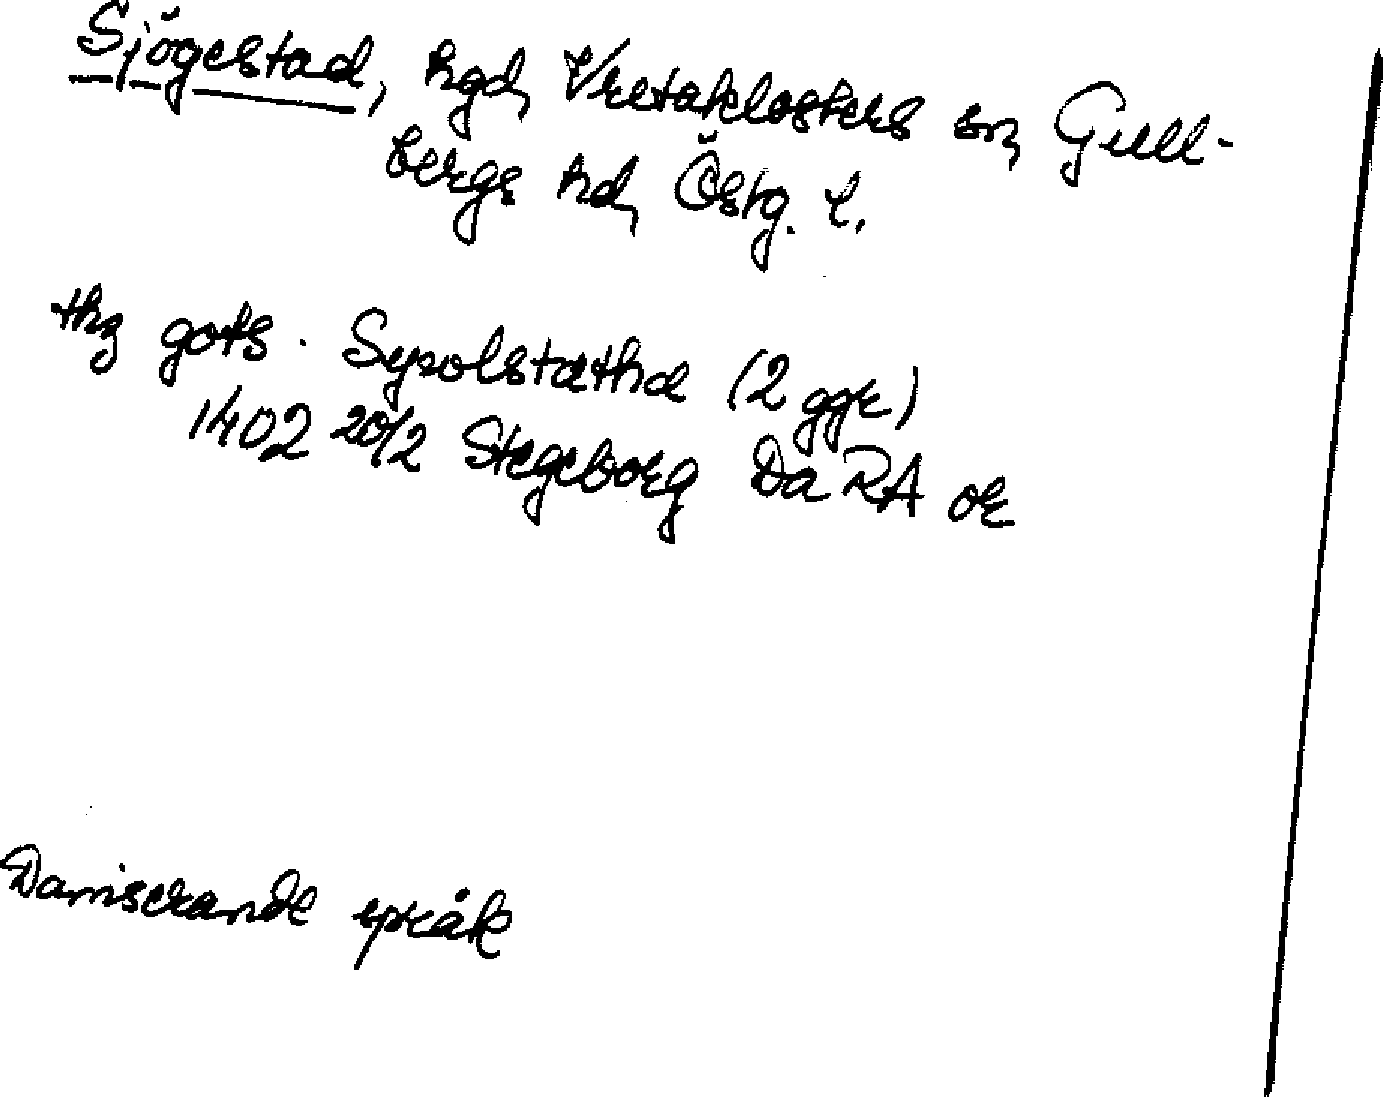 Sjögestad, hgd, Vretaklosters sn, Gull-
bergs hd, Östg. l.
thz gots. Syxolstætha (2 ggr)
1402 20/2 Stegeborg Da RA or
Daniserande språk